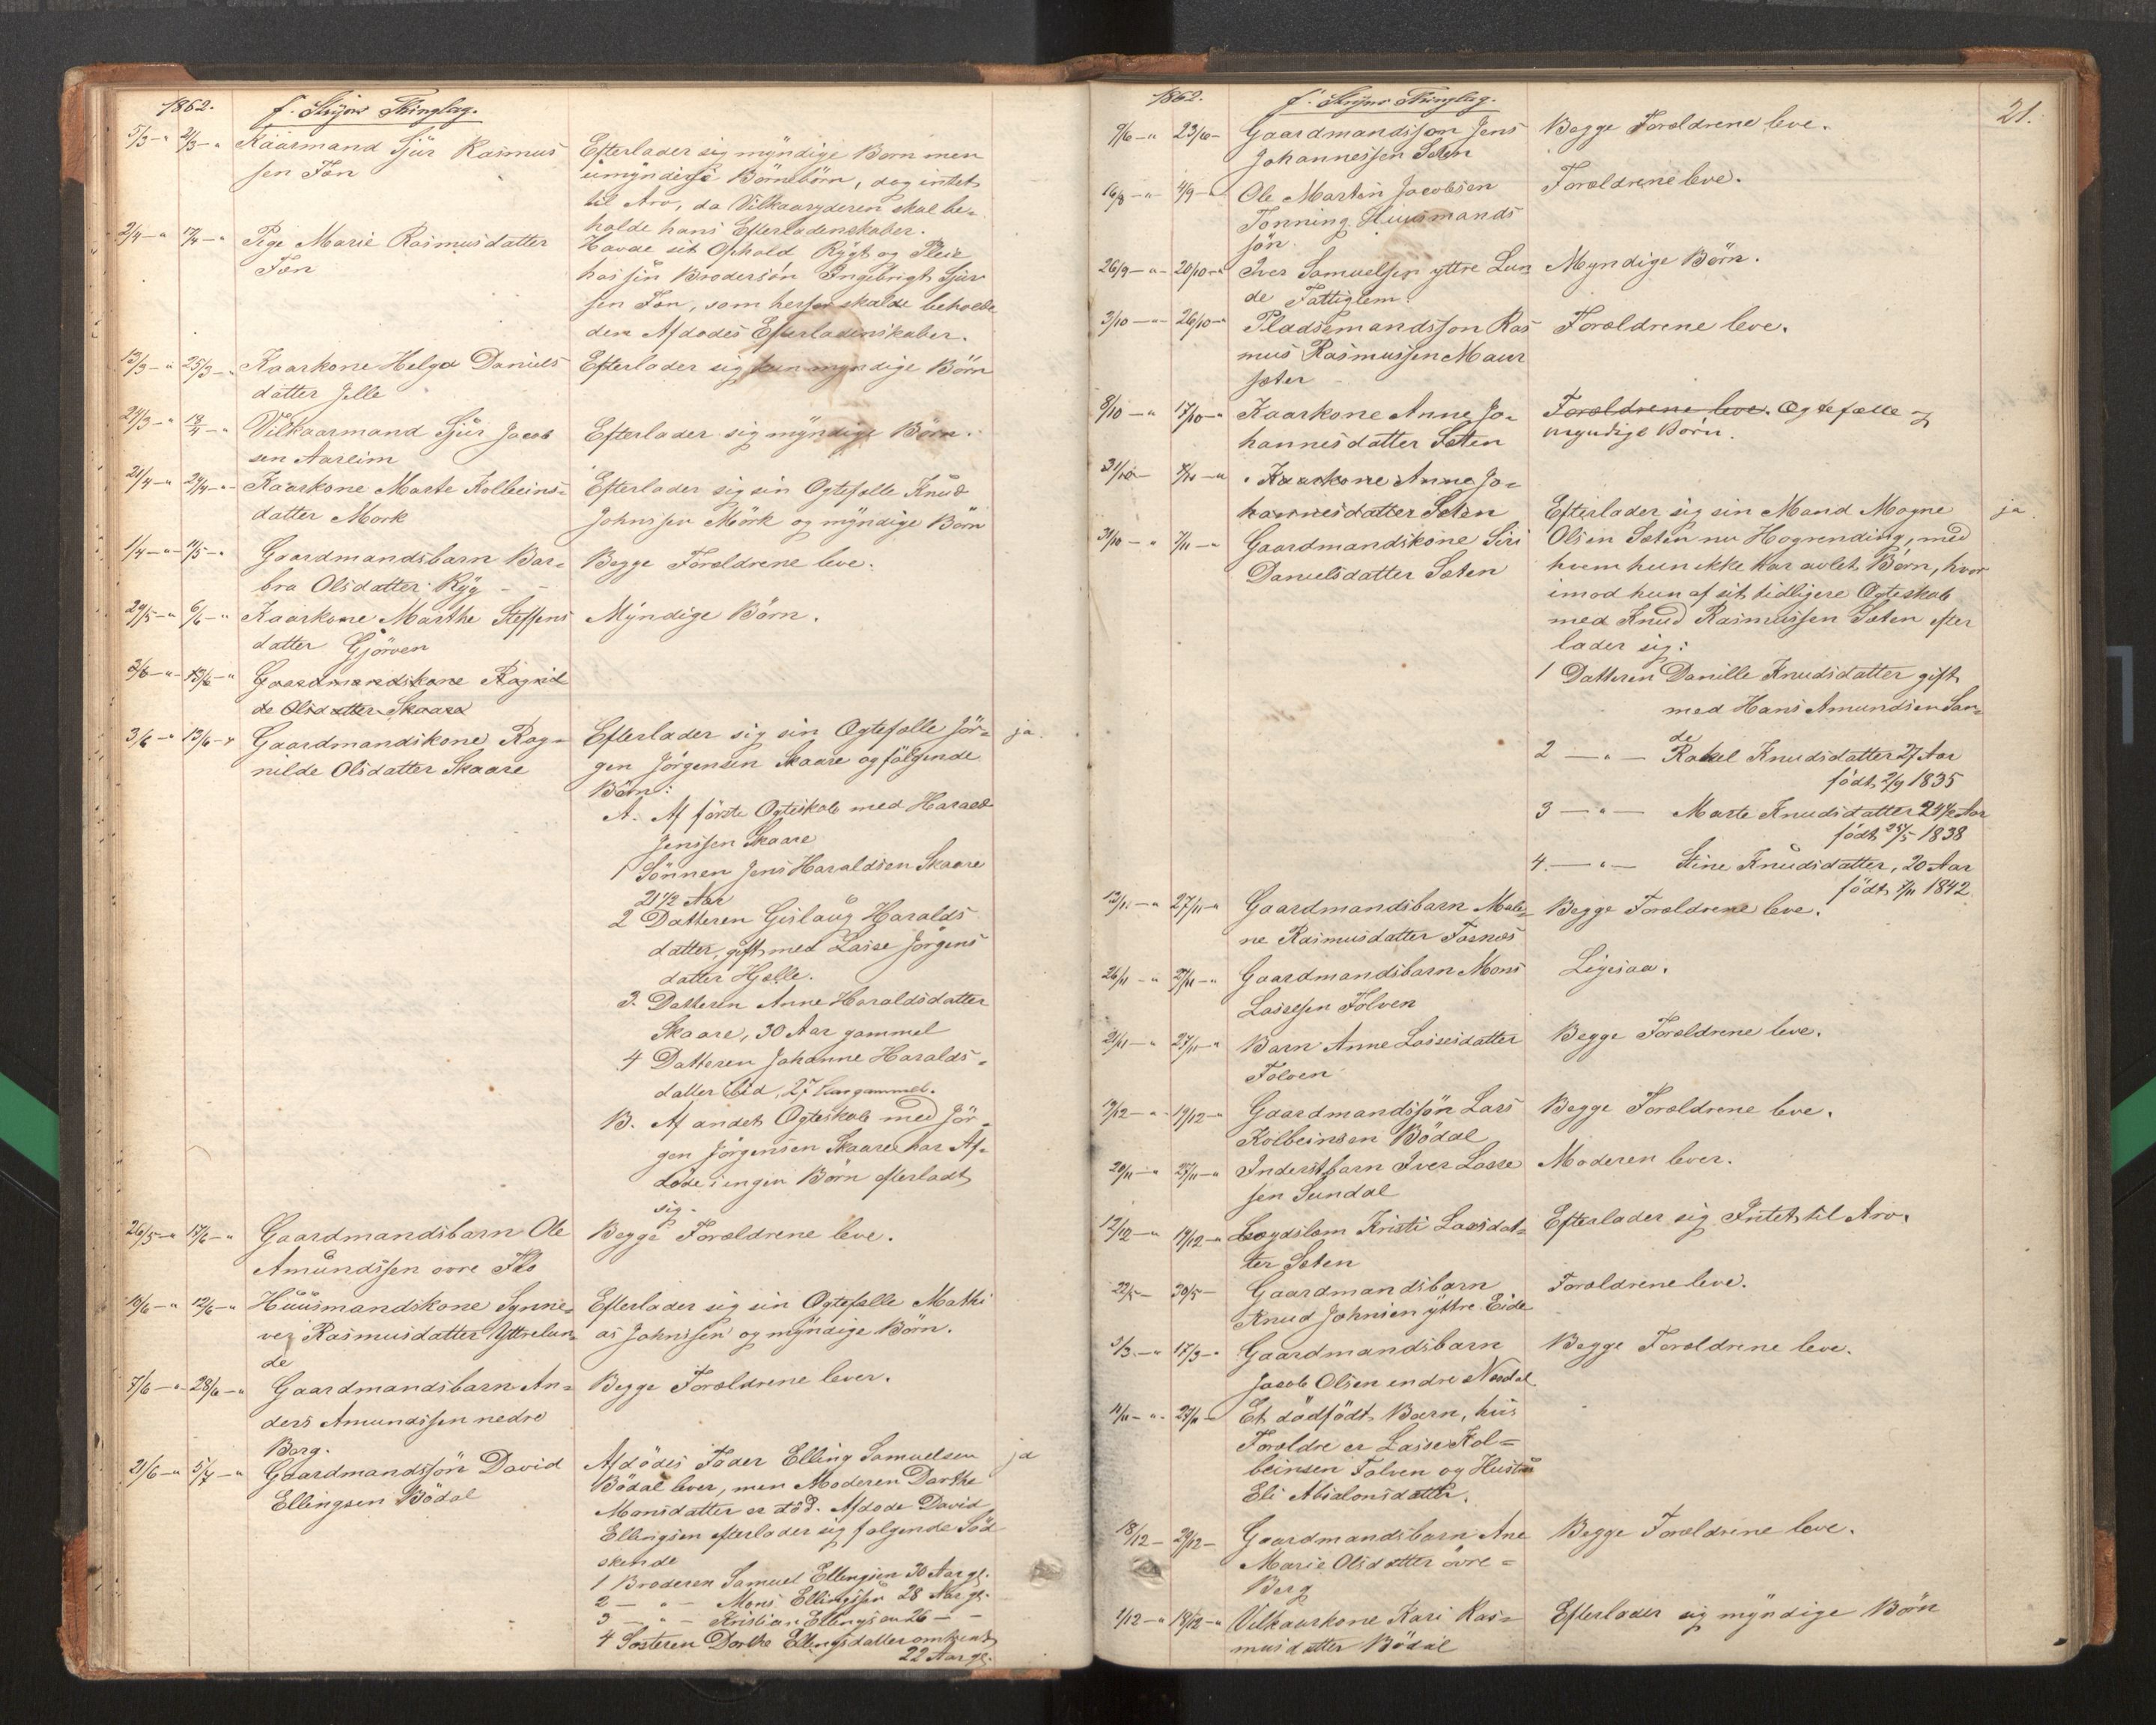 1862.
f. Stryns Thinglag.
5/3 - " 21/3 - " Kaarmand Sjur Rasmus
sen Fon
Efterlader sig myndige Born men
umyndige Börnebörn, dog intet
til Arv, da Vilkaaryderen skal be-
holde hans Efterladenskaber.
2/4 - " 17/4 - " Pige Marie Rasmusdatter
Fon
Havde sit Ophold Rygt og Pleie
hos sin Brodersön Ingebrigt Sjur
sen Fon, som herfor skulde beholde
den Afdödes Efterladenskaber.
13/3 - " 25/3 - " Kaarkone Helga Daniels
datter Jelle
Efterlader sig kun myndige Börn
27/3 - " 12/4 - " Vilkaarmand Sjur Jacob
sen Aarheim
Efterlader sig myndige Börn.
21/4 - " 29/4 - " Kaarkone Marte Kolbeins-
datter Mork
Efterlader sig sin Ogtefolle Knud
Johnssen Mörk og myndige Börn
1/4 - " 11/5 - " Gaardmandsbarn Bar-
bra Olsdatter Ryg
Begge Foroldrene leve.
29/5 - " 6/6 - " Kaarkone Marthe Steffens
datter Gjörven
Myndige Börn.
3/6 - " 13/6 - " Gaardmandskone Ragnil
de Olsdatter Skaare
3/6 - " 13/6 - " Gaardmandskone Rag-
nilde Olsdatter Skaare
Efterlader sig sin Ogtefolle Jör-
gen Jörgensen Skaare og fölgende
Börn:
ja.
A. Af förste Ogteskab med Harald
Jenssen Skaare
1 Sönnen Jens Haraldsen Skaare
21 1/2 Aar
2 Datteren Gislaug Haralds
datter, gift med Lasse Jörgens
datter Hjelle.
3. Datteren Anne Haraldsdatter
Skaare, 30 Aar gammel
4 Datteren Johanne Haralds-
datter ibid, 27 Aar gammel.
B. Af andet Ogteskab med Jör-
gen Jörgensen Skaare har Af-
döde ingen Börn efterladt
sig.
26/5 - " 17/6 - " Gaardmandsbarn Ole
Amundssen ovre Flo
Begge Foroldrene leve.
10/6 - " 12/6 - " Huusmandskone Synne-
ver Rasmusdatter Yttrelun-
de
Efterlader sig sin Ogtefolle Mathi
as Johnssen og myndige Börn.
7/6 - " 28/6 - " Gaardmandsbarn An-
ders Amundssen nedre
Berg.
Begge Foroldrene lever.
21/6 - " 5/7 - " Gaardmandssön David
Ellingsen Bödal
Afdödes Fader Elling Samuelsen
Bödal lever, men Moderen Dorthe
Monsdatter er död. Afdöde David
Ellingsen efterlader sig fölgende Söd
skende
ja
1 Broderen Samuel Ellingsen 30 Aar gl.
2 - " - Mons Ellingssen 28 Aar gl.
3 - " - Kristian Ellingsen 26 - -
4 Sosteren Dorthe Ellingsdatter omtrent
22 Aar gl.
1862.
f. Stryns Thinglag.
21.
9/6 - " 23/6 - Gaardmandsson Jens
Johannessen Soten
Begge Foroldrene leve.
16/8 - " 4/9 - Ole Martin Jacobsen
Tonning Huusmands
sön
Foroldrene leve.
26/9 - " - 20/10 - " Iver Samuelsen yttre Lun
de Fattiglem.
Myndige Börn.
3/10 - " - 26/10 - " Pladsemandsson Ras
mus Rasmussen Maur
soter
Foroldrene leve.
8/10 - " 17/10 - " Kaarkone Anne Jo-
hannesdatter Soten
Foroldrene leve. Ogtefolle og
myndige Börn.
31/10 - 7/11 - " Kaarkone Anne Jo-
hannesdatter Soten
31/10 - " 7/11 - " Gaardmandskone Siri
Danielsdatter Soten
Efterlader sig sin Mand Mogne
Olsen Soten nu Hogrending, med
hvem hun ikke har avlet Börn, hvor
imod hun af sit tidligere Ogteskab
med Knud Rasmussen Soten efter
lader sig:
ja
1 Datteren Danille Knudsdatter gift
med Hans Amundsen San-
de
2 - " - Rakel Knudsdatter 27 Aar
födt 2/9 1835
3 - " - Marte Knudsdatter 24 1/2 Aar
födt 25/5 1838
4. - " - Stine Knudsdatter, 20 Aar
födt 7/11 1842.
12/11 - " 27/11 - " Gaardmandsbarn Male-
ne Rasmusdatter Fosnos
Begge Foroldrene leve.
26/11 - " 27/11 - " Gaardmandsbarn Mons
Lassessen Folven
Ligesaa.
21/11 - " 27/11 - " Barn Anne Lassesdatter
Folven
Begge Foroldrene leve.
13/12 - " 19/12 - " Gaardmandssön Lars
Kolbeinsen Bödal
Begge Foroldrene leve.
20/11 - " 27/11 - " Inderstbarn Iver Lasse
sen Sundal
Moderen lever.
12/12 - " 19/12 - " Loegdslem Kristi Laasdat-
ter Soten
Efterlader sig Intet til Arv.
22/5 - 30/5 - Gaardmandsbarn
Knud Johnsen yttre Eide
Foroldrene leve.
3/3. - " 17/3 - " Gaardmandsbarn
Jacob Olsen endre Nesdal
Begge Foroldrene leve.
11/11 - " - 27/11 - Et dödfödt Barn, hvis
Foroldre er Lasse Kol-
beinsen Folven og Hustru
Eli Absalonsdatter.
18/12 - 29/12 - Gaardmandsbarn Ane
Marie Olsdatter övre-
Berg
Begge Foroldrene leve.
1/12 - " 19/12 - " Vilkaarkone Kari Ras-
musdatter Bödal
Efterlader sig myndige Börn